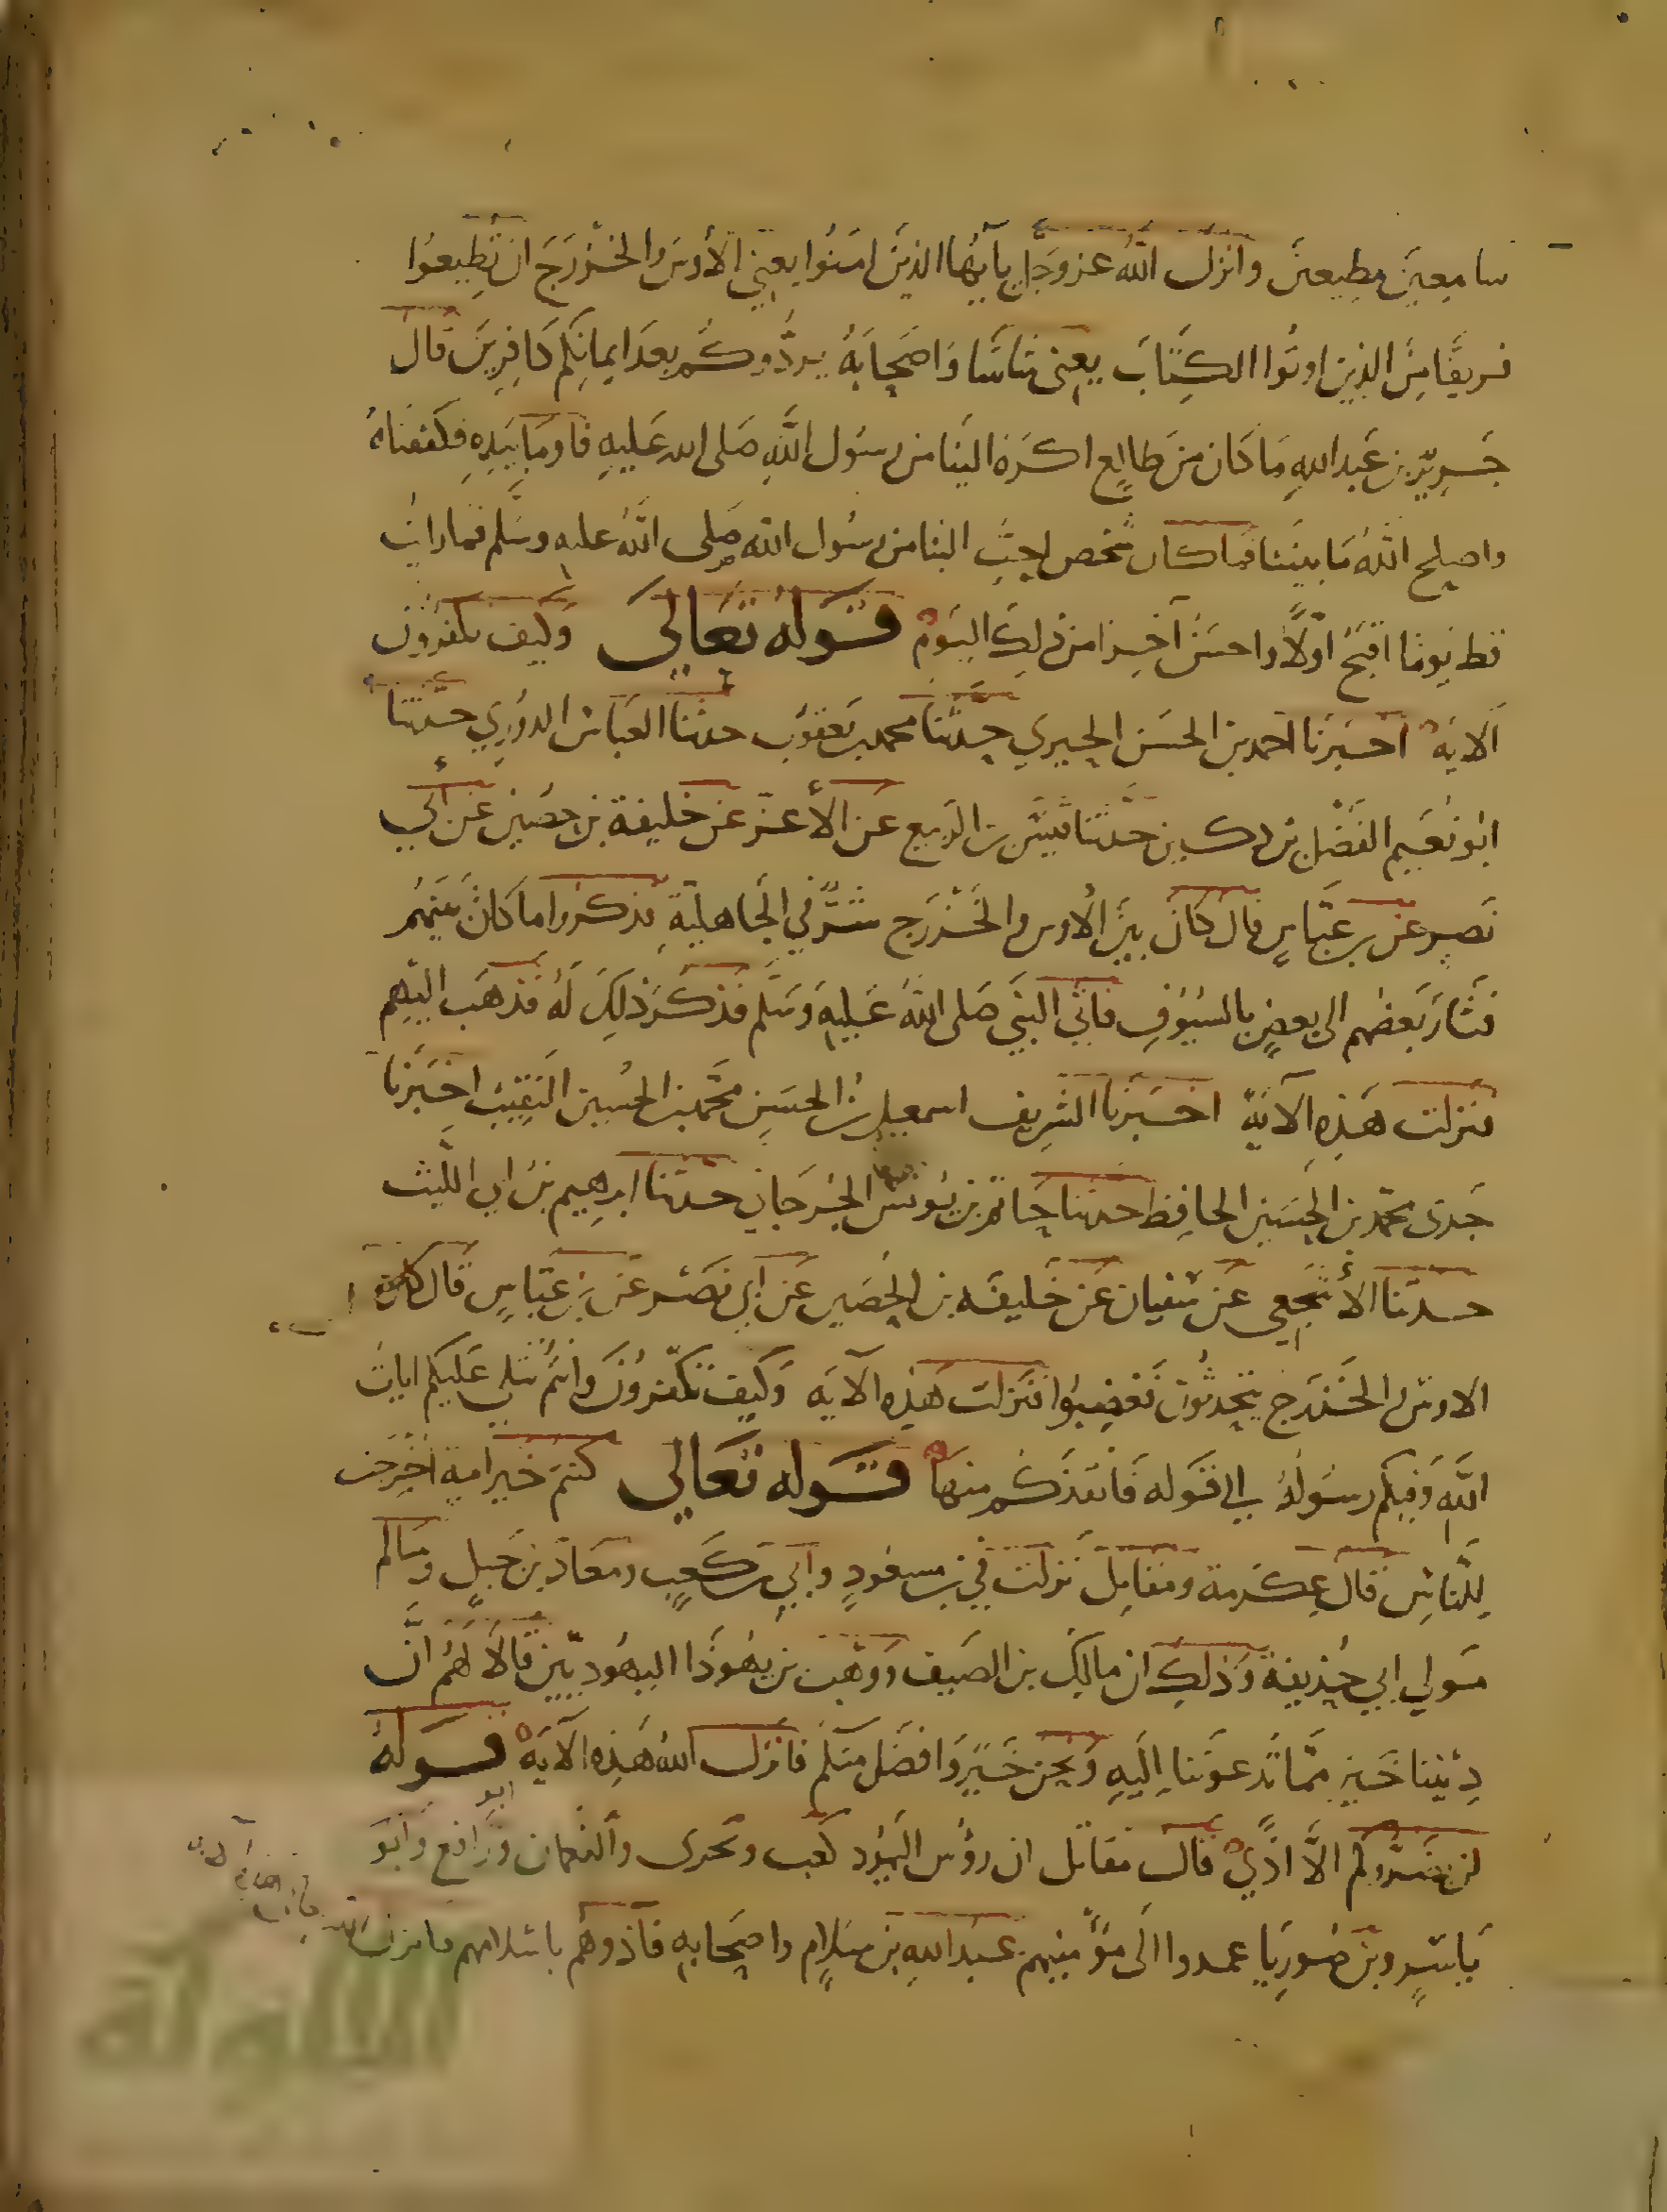 سامعين مطيعين وانزل الله عز وجل يا أيها الذين امنوا يعني الأوس والخزرج ان تطيعوا
فريقا من الذين اوتوا الكتاب يعني شاسا واصحابه يردوكم بعد ايمانكم كافرين قال
جرير بن عبد الله ما كان من طالع اكره الينا من رسول الله صلى الله عليه فاوما بيده فكففناه
واصلح الله ما بيننا فما كان شخص احب الينا من رسول الله صلى الله عليه وسلم فما رايت
قط يوما اقبح اولا واحسن آخرا من ذلك اليوم قوله تعالى وكيف تكفرون
الآية اخبرنا احمد بن الحسن الحيري حدثنا محمد بن يعقوب حدثنا العباس الدوري حدثنا
ابو نعيم الفضل بن دكين حدثنا قيس بن الربيع عن الأغر عن خليفة بن حصين عن أبي
نصر عن بن عباس قال كان بين الأوس والخزرج شر في الجاهلية فذكروا ما كان بينهم
فثار بعضهم الى بعض بالسيوف فاتى النبي صلى الله عليه وسلم فذكر ذلك له فذهب اليهم
فنزلت هذه الآية اخبرنا الشريف اسمعيل بن الحسن بن محمد بن الحسين النقيب اخبرنا
جدى محمد بن الحسين الحافظ حدثنا حاتم بن يونس الجرجاني حدثنا ابرهيم بن ابي الليث
حدثنا الأشجعي عن سفيان عن خليفة بن الحصين عن ابي نصر عن بن عباس قال كان
الاوس والخزرج يتحدثون فغضبوا فنزلت هذه الآية وكيف تكفرون وانتم تتلى عليكم ايات
الله وفيكم رسوله الى قوله فانقذكم منها قوله تعالى كنتم خير امة اخرجت
للناس قال عكرمة ومقاتل نزلت في بن مسعود وابي بن كعب ومعاذ بن جبل وسالم
مولي ابي حذيفة وذلك ان مالك بن الصيف ووهب بن يهوذا اليهوديين قالا لهم ان
ديننا خير مما تدعوننا اليه ونحن خير وافضل منكم فانزل الله هذه الآية قوله
لن يضروكم الا اذى قال مقاتل ان رؤس اليهود كعب وبحرى والنعمان وابو رافع وابو
ياسر وبن صوريا عمدوا الى مؤمنيهم عبد الله بن سلام واصحابه فاذوهم باسلامهم فانزل الله